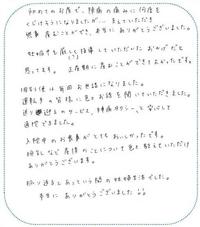 初めてのお産で、陣痛の痛みに何度も
くじけそうになりましたが… 支えていただき
無事 産むことができ、本当に ありがとうございました。
妊婦中を厳しく(?)指導していただいた おかげだと
思ってます。 正産期に産むことができてよかったです。
担当は毎回お世話になりました。
運転手の皆様に色々お話を聞いていただきました。
送り迎えのサービス、陣痛タクシー、と安心して
通院できました。
入院中のお食事がとてもおいしかったです。
授乳など産後のことについて色々教えていただけ
ありがとうございます。
振り返るとあっという間の妊婦生活でした。
本当に ありがとうございました